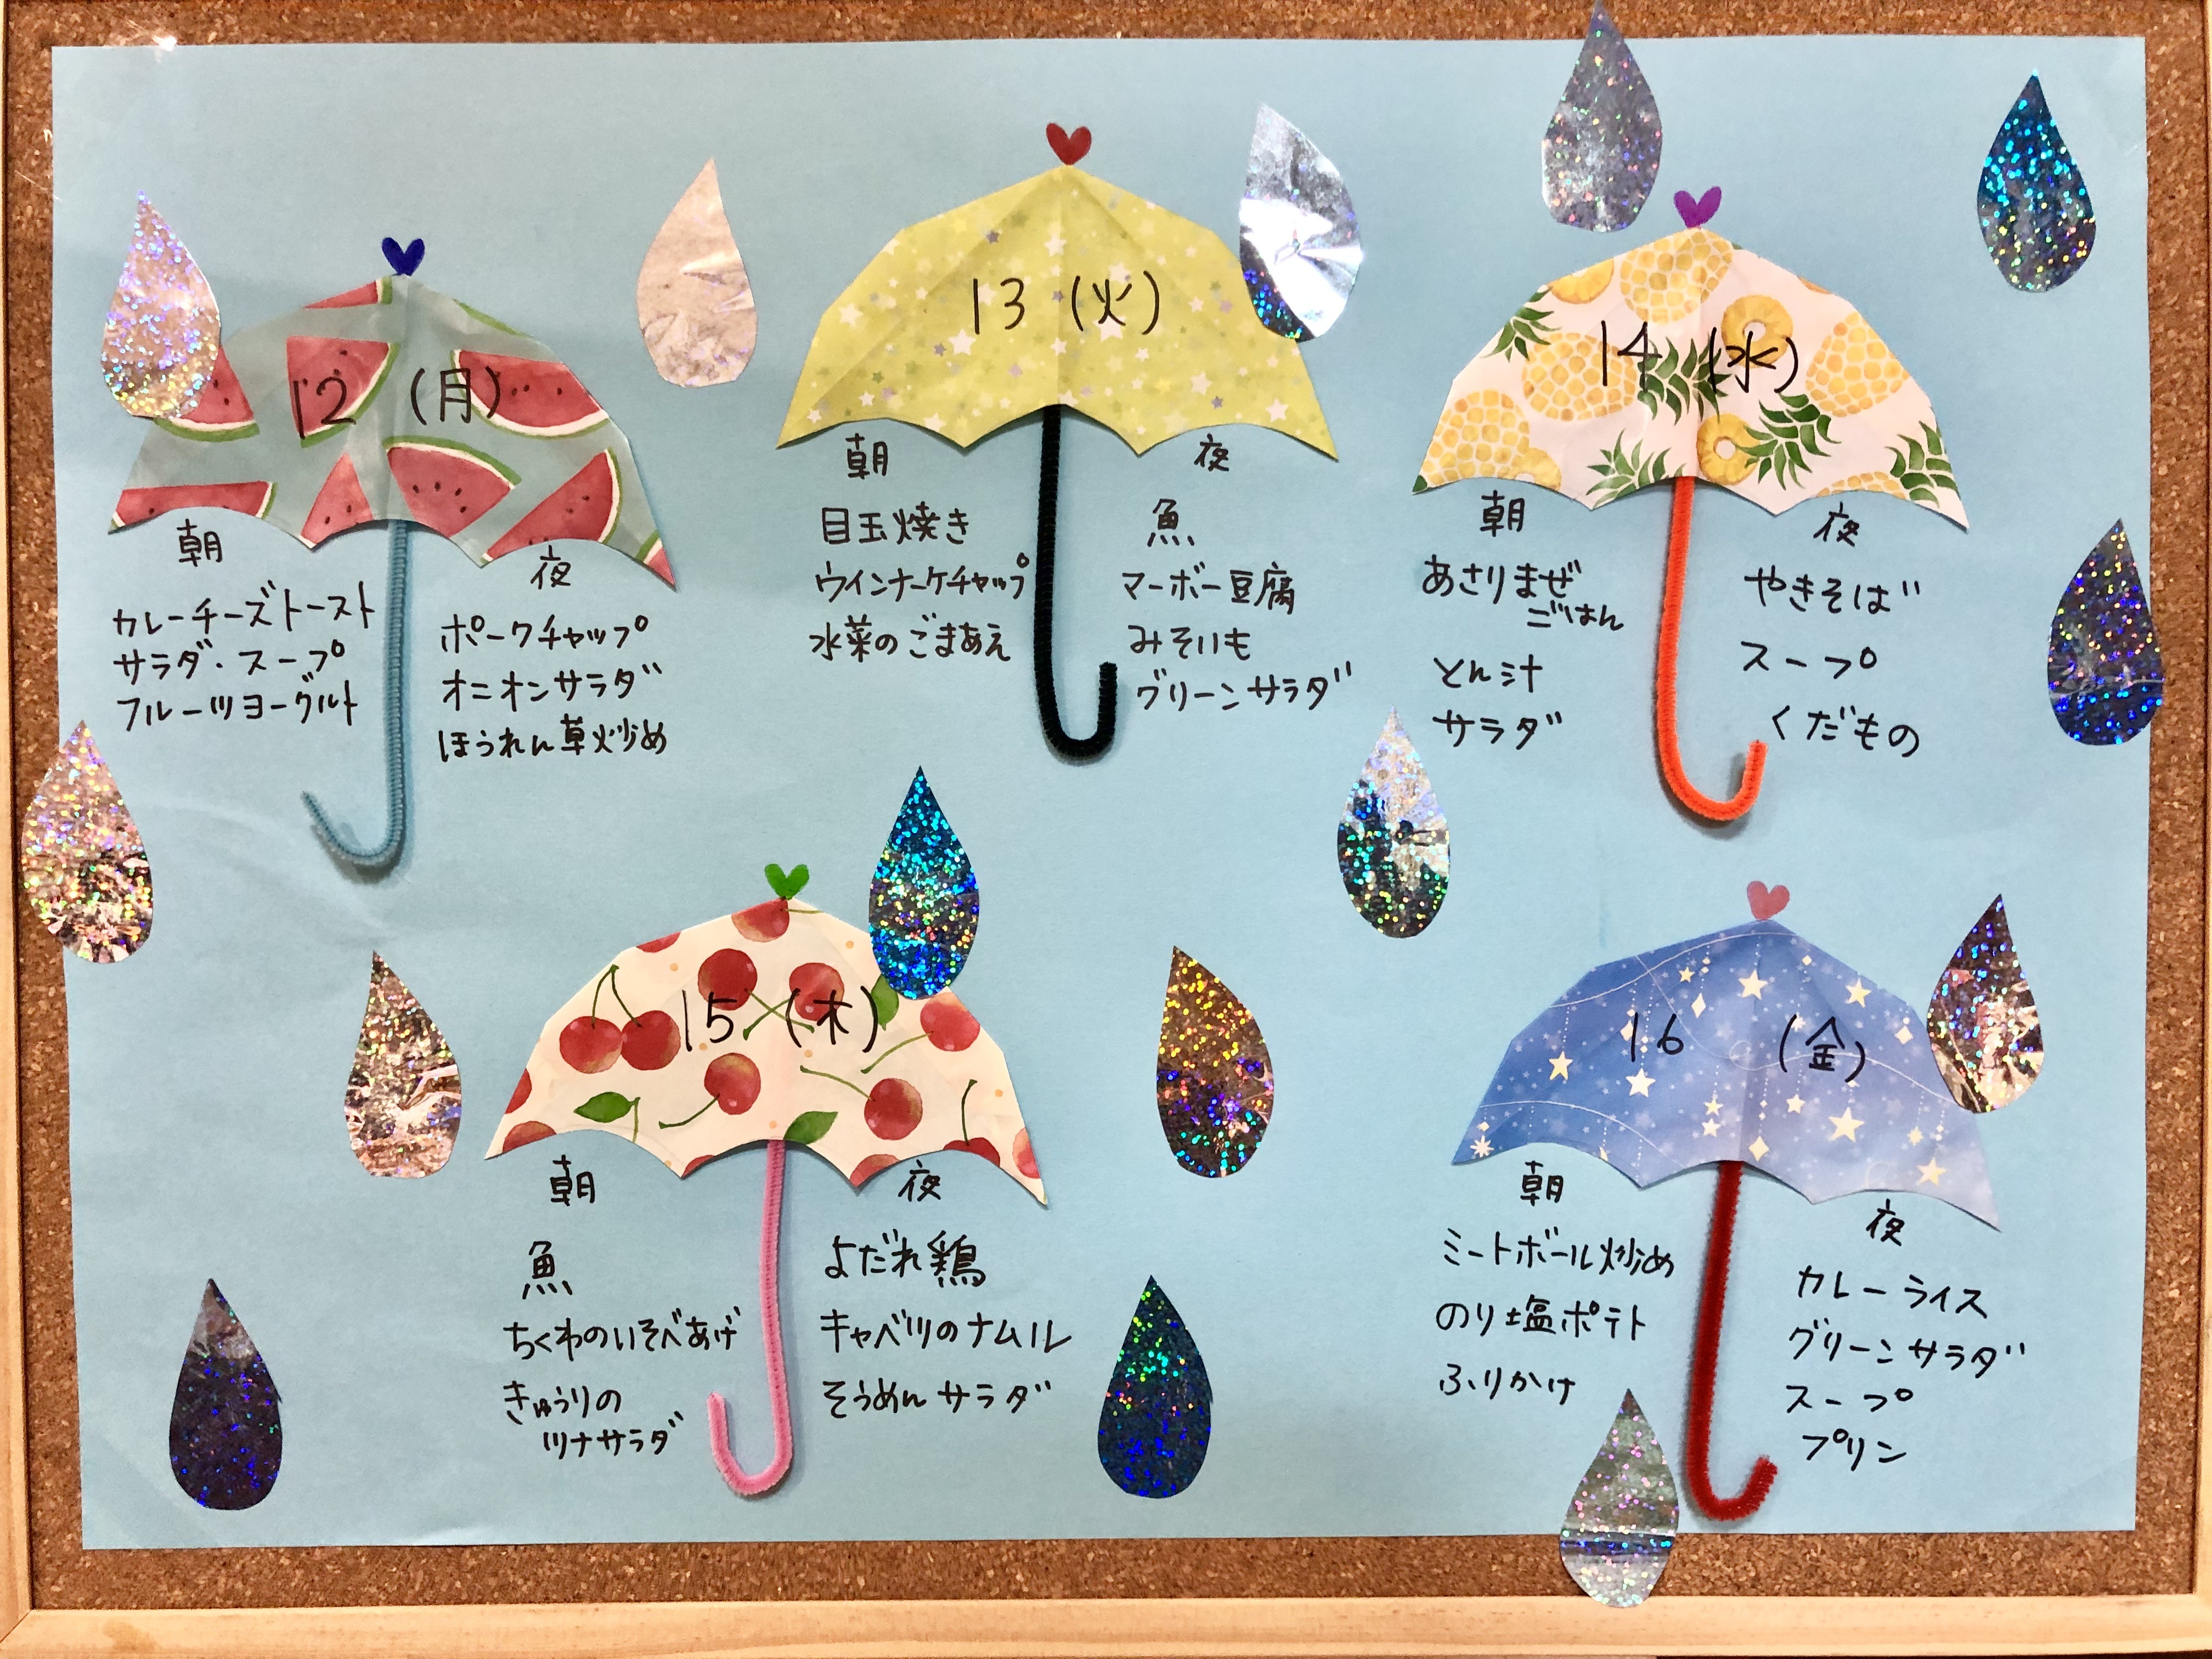 12 (月)
朝
カレーチーズトースト
サラダ・スープ
フルーツヨーグルト
夜
ポークチャップ
オニオンサラダ
ほうれん草炒め
13 (火)
朝
目玉焼き
ウインナーケチャップ
水菜のごまあえ
夜
魚
マーボー豆腐
みそいも
グリーンサラダ
14 (水)
朝
あさりまぜ
ごはん
とん汁
サラダ
夜
やきそば
スープ
くだもの
15 (木)
朝
魚
ちくわのいそべあげ
きゅうりの
ツナサラダ
夜
よだれ鶏
キャベツのナムル
そうめんサラダ
16 (金)
朝
ミートボール炒め
のり塩ポテト
ふりかけ
夜
カレーライス
グリーンサラダ
スープ
プリン